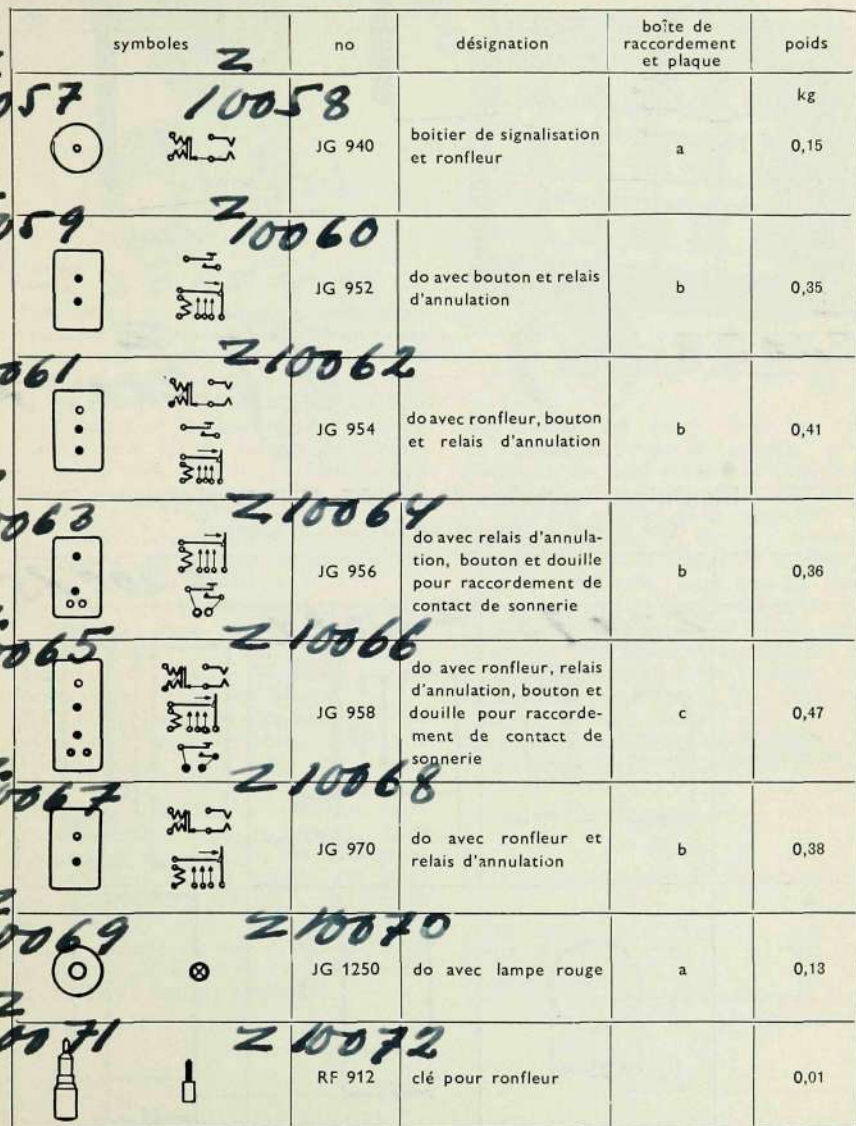 symboles
no
désignation
boîte de
raccordement
et plaque
poids
kg
Z
057
10058
JG 940
boitier de signalisation
et ronfleur
a
0,15
059
Z
10060
JG 952
do avec bouton et relais
d'annulation
b
0,35
061
Z 10062
JG 954
do avec ronfleur, bouton
et relais d'annulation
b
0,41
0063
Z 10064
JG 956
do avec relais d'annula-
tion, bouton et douille
pour raccordement de
contact de sonnerie
b
0,36
0065
Z 10066
JG 958
do avec ronfleur, relais
d'annulation, bouton et
douille pour raccorde-
ment de contact de
sonnerie
c
0,47
0067
Z 10068
JG 970
do avec ronfleur et
relais d'annulation
b
0,38
0069
Z 10070
JG 1250
do avec lampe rouge
a
0,13
Z
0071
Z 10072
RF 912
clé pour ronfleur
0,01